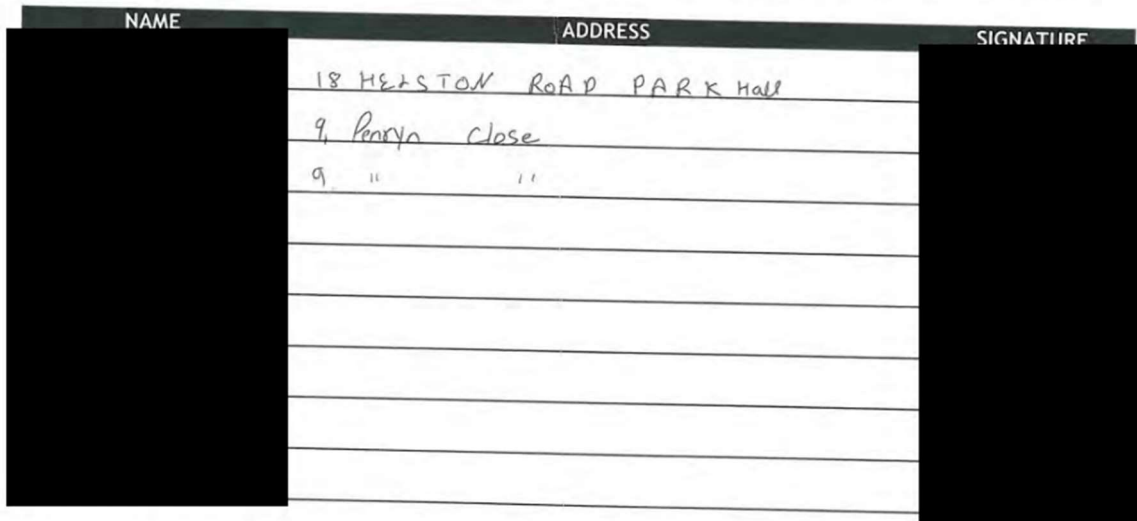 NAME ADDRESS SIGNATURE
18 HELSTON ROAD PARK Hall
9, Penryn Close
9 " "